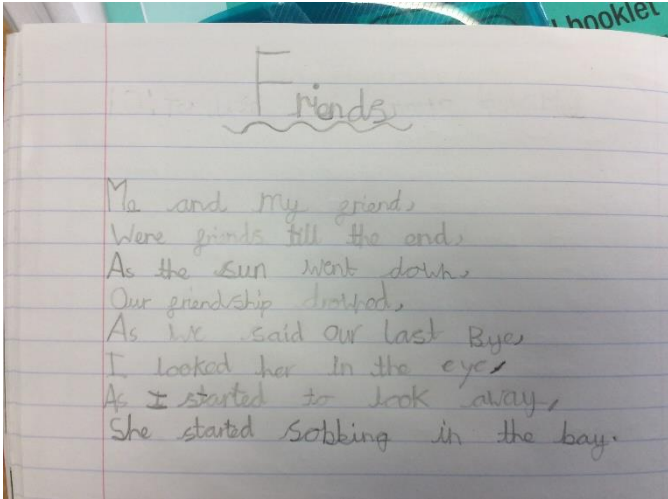 booklet
Friends
Me and my friend,
Were frinds till the end,
As the sun went down,
Our friendship drowned,
As we said our last Bye,
I looked her in the eye,
As I started to look away,
She started sobbing in the bay.